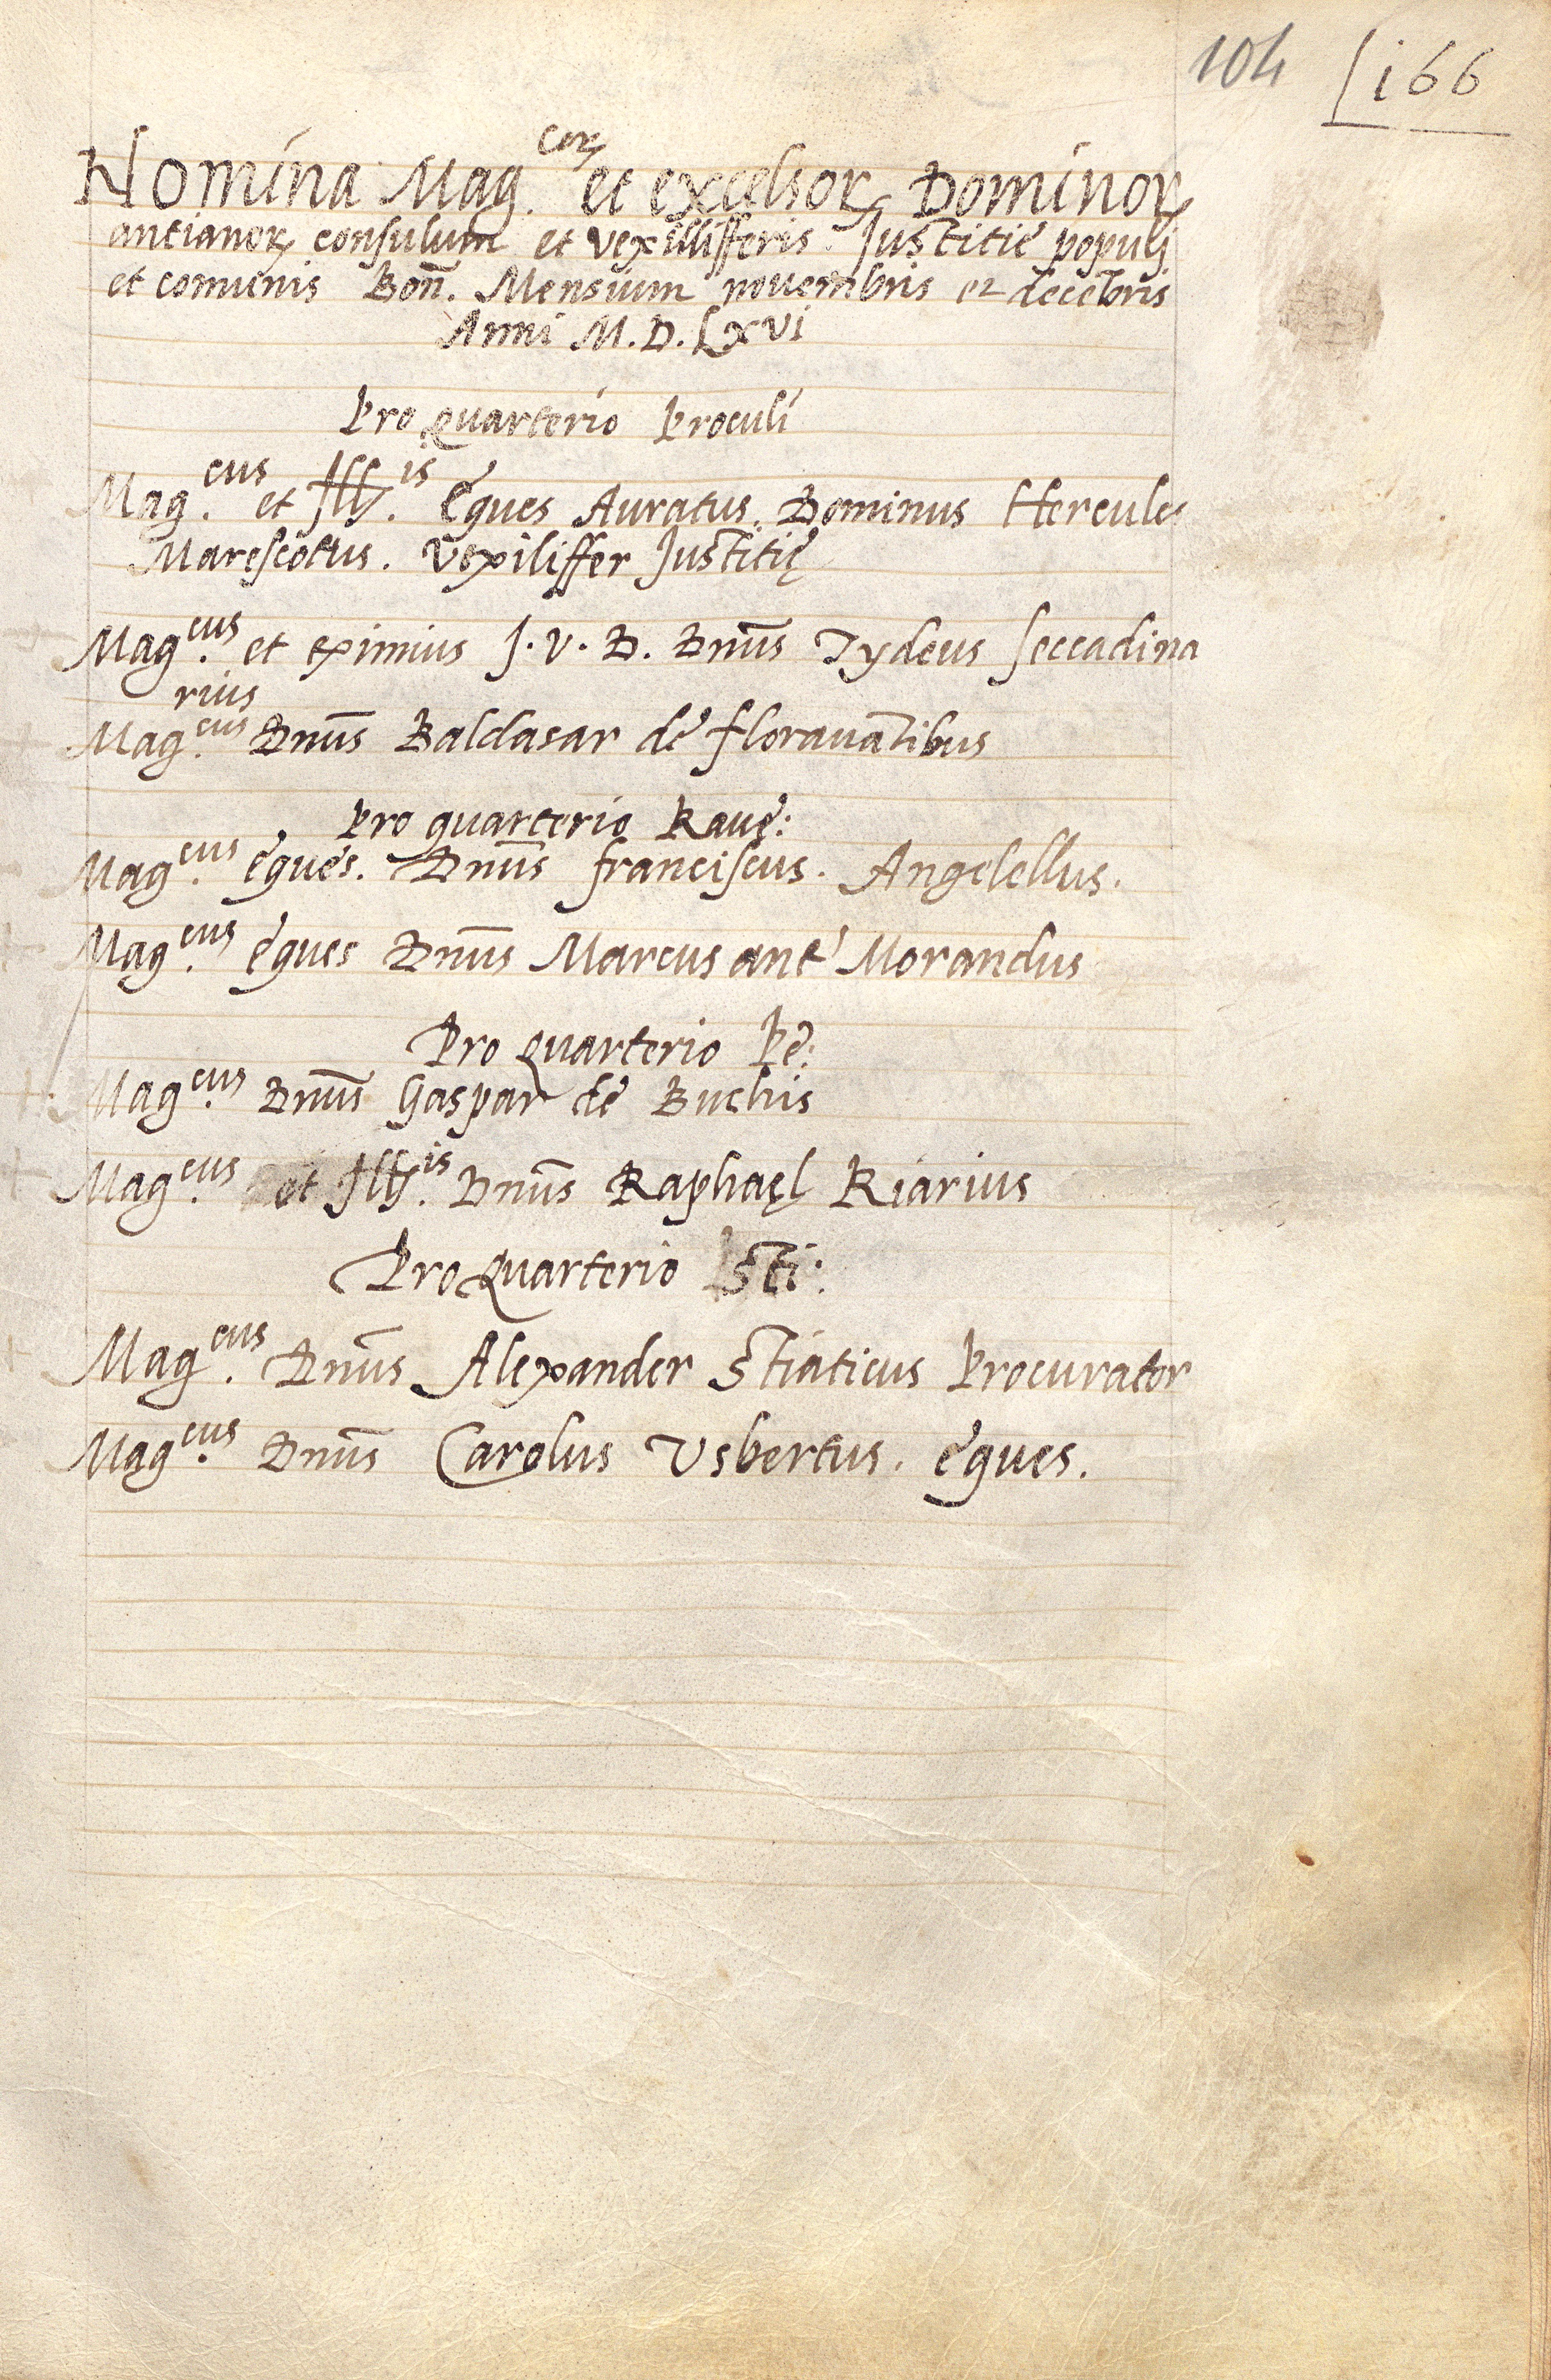 104 166
Nomina Mag.corꝝ et excelsorꝝ Dominorꝝ
antianorꝝ consulum et vexillifferis Justitie populj
et comunis Bon̄. Mensium novembris et decēbris
Anni M.D.Lxvi
Pro quarterio Proculi
Mag.cus et Ill.is eques Auratus. Dominus Hercules
Marescottus. Vexiliffer Justitię
Mag.cus et eximius J.V.D. Dnūs Tydeus seccadina
rius
Mag.cus Dnūs Baldasar de floravātibus
Pro quarterio Ravę:
Mag.cus eques. Dnūs franciscus. Angelellus.
Mag.cus eques Dnūs Marcus ant' Morandus
Pro quarterio Pe:
Mag.cus Dnūs Gaspar de Buchis
Mag.cus et Ill.is Dnūs Raphaęl Riarius
Pro quarterio Sti:
Mag.cus Dnūs Alexander Stiaticus Procurator
Mag.cus Dnūs Carolus Usbertus. eques.